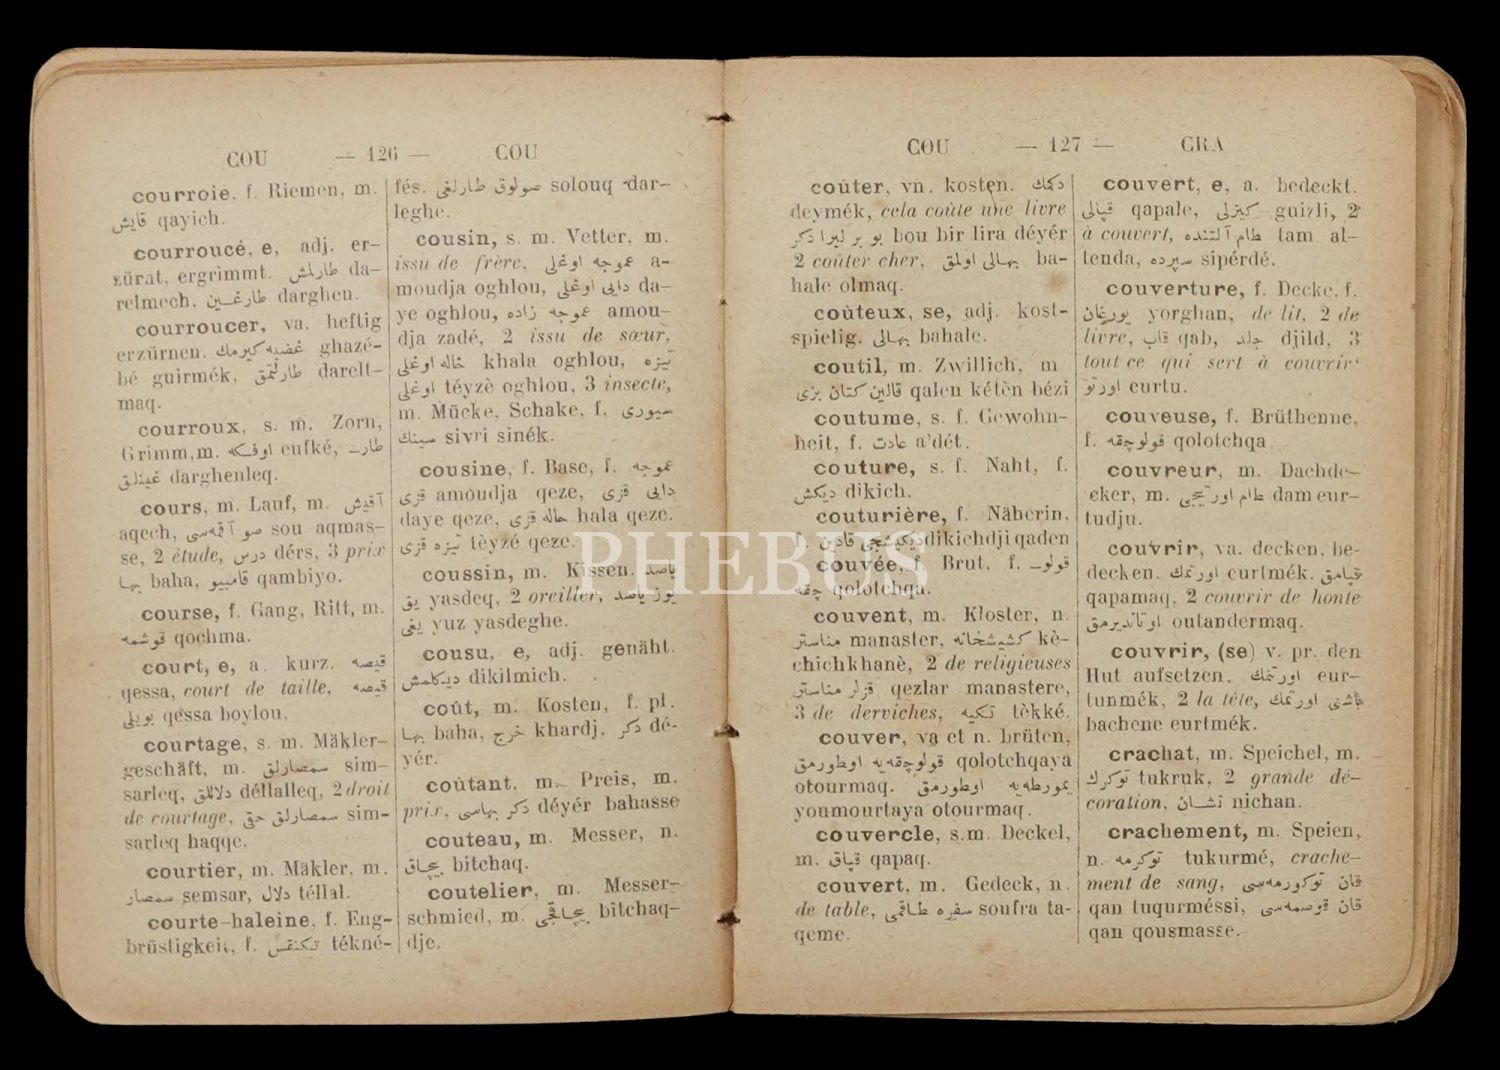 COU — 126 — COU
courroie, f. Riemen, m.
قایش qayich.
courroucé, e, adj. er-
zürat, ergrimmt. طارلمش da-
relmech, طارغین darghen.
courroucer, va. heftig
erzürnen. غضبه كیرمك ghazé-
bé guirmék, طارلتمق darelt-
maq.
courroux, s. m. Zorn,
Grimm, m. اوفكه eufké, طار
غینلق darghenleq.
cours, m. Lauf, m. آقیش
aqech, صو آقمه‌سی sou aqmas-
se, 2 étude, درس dérs, 3 prix
بها baha, قامبیو qambiyo.
course, f. Gang, Ritt, m.
قوشمه qochma.
court, e, a. kurz. قیصه
qessa, court de taille, قیصه
بویلی qessa boylou.
courtage, s. m. Mäkler-
geschäft, m. سمصارلق sim-
sarleq, دلاللق déllalleq, 2 droit
de courtage, سمصارلق حقی sim-
sarleq haqqe.
courtier, m. Mäkler, m.
سمصار semsar, دلال téllal.
courte-haleine, f. Eng-
brüstigkeit, f. تكنفس tékné-
fés. صولوق طارلغی solouq dar-
leghe.
cousin, s. m. Vetter, m.
issu de frère, عموجه اوغلی a-
moudja oghlou, دایی اوغلی da-
ye oghlou, عموجه زاده amou-
dja zadé, 2 issu de sœur,
خاله اوغلی khala oghlou, تیزه
اوغلی téyzè oghlou, 3 insecte,
m. Mücke, Schake, f. سیوری
سینك sivri sinék.
cousine, f. Base, f. عموجه
قزی amoudja qeze, دایی قزی
daye qeze, خاله قزی hala qeze.
تیزه قزی tèyzé qeze.
coussin, m. Kissen. یاصد
یق yasdeq, 2 oreiller, یوز یاصد
یغی yuz yasdeghe.
cousu, e, adj. genäht.
دیكلمش dikilmich.
coût, m. Kosten, f. pl.
بها baha, خرج khardj, دكر dé-
yér.
coûtant, m. Preis, m.
prix, دكر بهاسی déyér bahasse
couteau, m. Messer, n.
بیچاق bitchaq.
coutelier, m. Messer-
schmied, m. بیچاقجی bitchaq-
dje.
COU — 127 — CRA
coûter, vn. kosten. دكمك
deymék, cela coûte une livre
بو بر لیرا دكر bou bir lira déyér
2 coûter cher, بهالی اولمق ba-
hale olmaq.
coûteux, se, adj. kost-
spielig. بهالی bahale.
coutil, m. Zwillich, m
قالین كتان بزی qalen kétèn bézi
coutume, s. f. Gewohn-
heit, f. عادت a'dét.
couture, s. f. Naht, f.
دیكش dikich.
couturière, f. Näherin.
دیكیشجی قادین dikichdji qaden
couvée, f. Brut, f. قولو
چقه qolotchqa.
couvent, m. Kloster, n.
مناستر manaster, كشیشخانه kè-
chichkhanè, 2 de religieuses
قزلر مناستر qezlar manastere,
3 de derviches, تكیه tèkké.
couver, va et n. brüten,
قولوچقه‌یه اوطورمق qolotchqaya
otourmaq. یمورطه‌یه اوطورمق
youmourtaya otourmaq.
couvercle, s.m. Deckel,
m. قپاق qapaq.
couvert, m. Gedeck, n.
de table, سفره طاقمی soufra ta-
qeme.
couvert, e, a. bedeckt.
قپالی qapale, كیزلی guizli, 2
à couvert, طام آلتنده tam al-
tenda, سپرده sipérdé.
couverture, f. Decke, f.
یورغان yorghan, de lit, 2 de
livre, قاب qab, جلد djild, 3
tout ce qui sert à couvrir
اورتو eurtu.
couveuse, f. Brüthenne,
f. قولوچقه qolotchqa
couvreur, m. Dachde-
cker, m. طام اورتیجی dam eur-
tudju.
couvrir, va. decken, be-
decken. اورتمك eurtmék. قپامق
qapamaq, 2 couvrir de honte
اوتاندیرمق outandermaq.
couvrir, (se) v. pr. den
Hut aufsetzen. اورتنمك eur-
tunmék, 2 la tête, باشنی اورتمك
bachene eurtmék.
crachat, m. Speichel, m.
توكرك tukruk, 2 grande dé-
coration, نشان nichan.
crachement, m. Speien,
n. توكرمه tukurmé, crache-
ment de sang, قان توكورمه‌سی
qan tuqurméssi, قان قوصمه‌سی
qan qousmasse.
PHEBUS